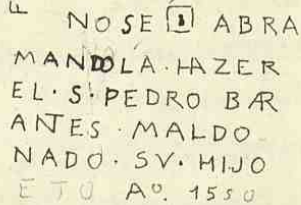 NO SE ABRA
MANDOLA · HAZER
EL · S · PEDRO BAR
ANTES · MALDO
NADO · SV · HIJO
ETO Aº. 1550